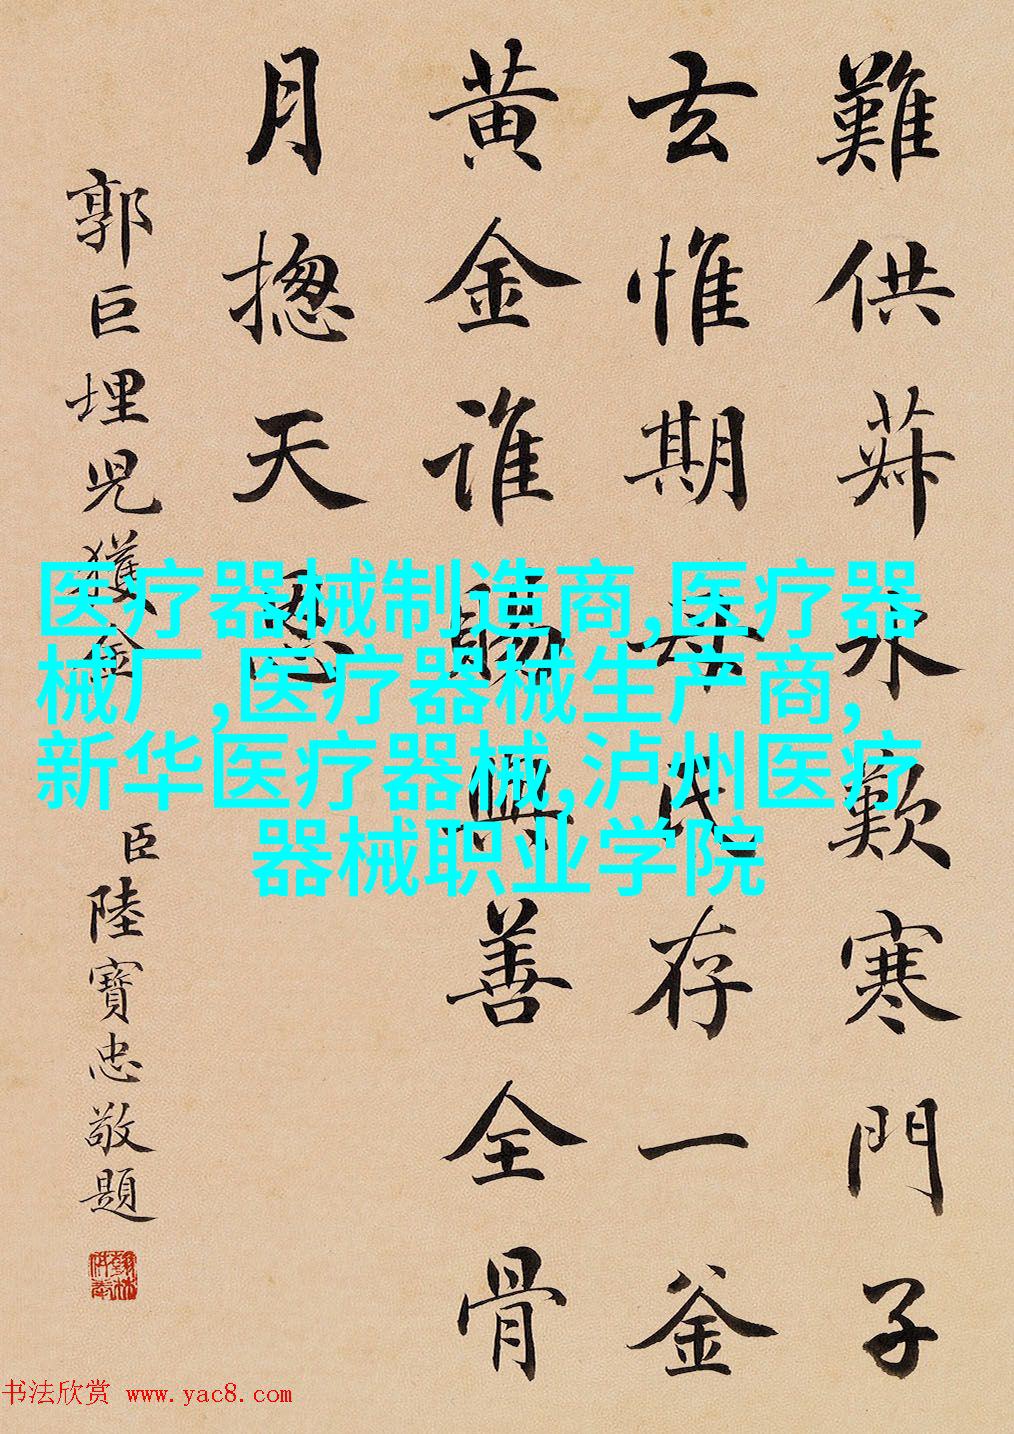 難供菽水歎寒門子
玄惟期母氏存一釜
黄金誰賜與善全骨
月揔天恩
郭巨埋児獲金
臣陸寶忠敬題
医疗器械制造商,医疗器
械厂,医疗器械生产商,
新华医疗器械,泸州医疗
器械职业学院
书法欣赏 www.yac8.com